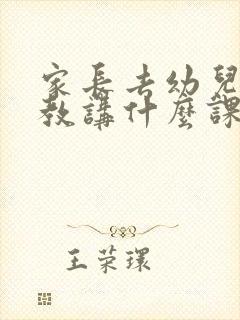 家長去幼兒
教講什麼課
王荣環